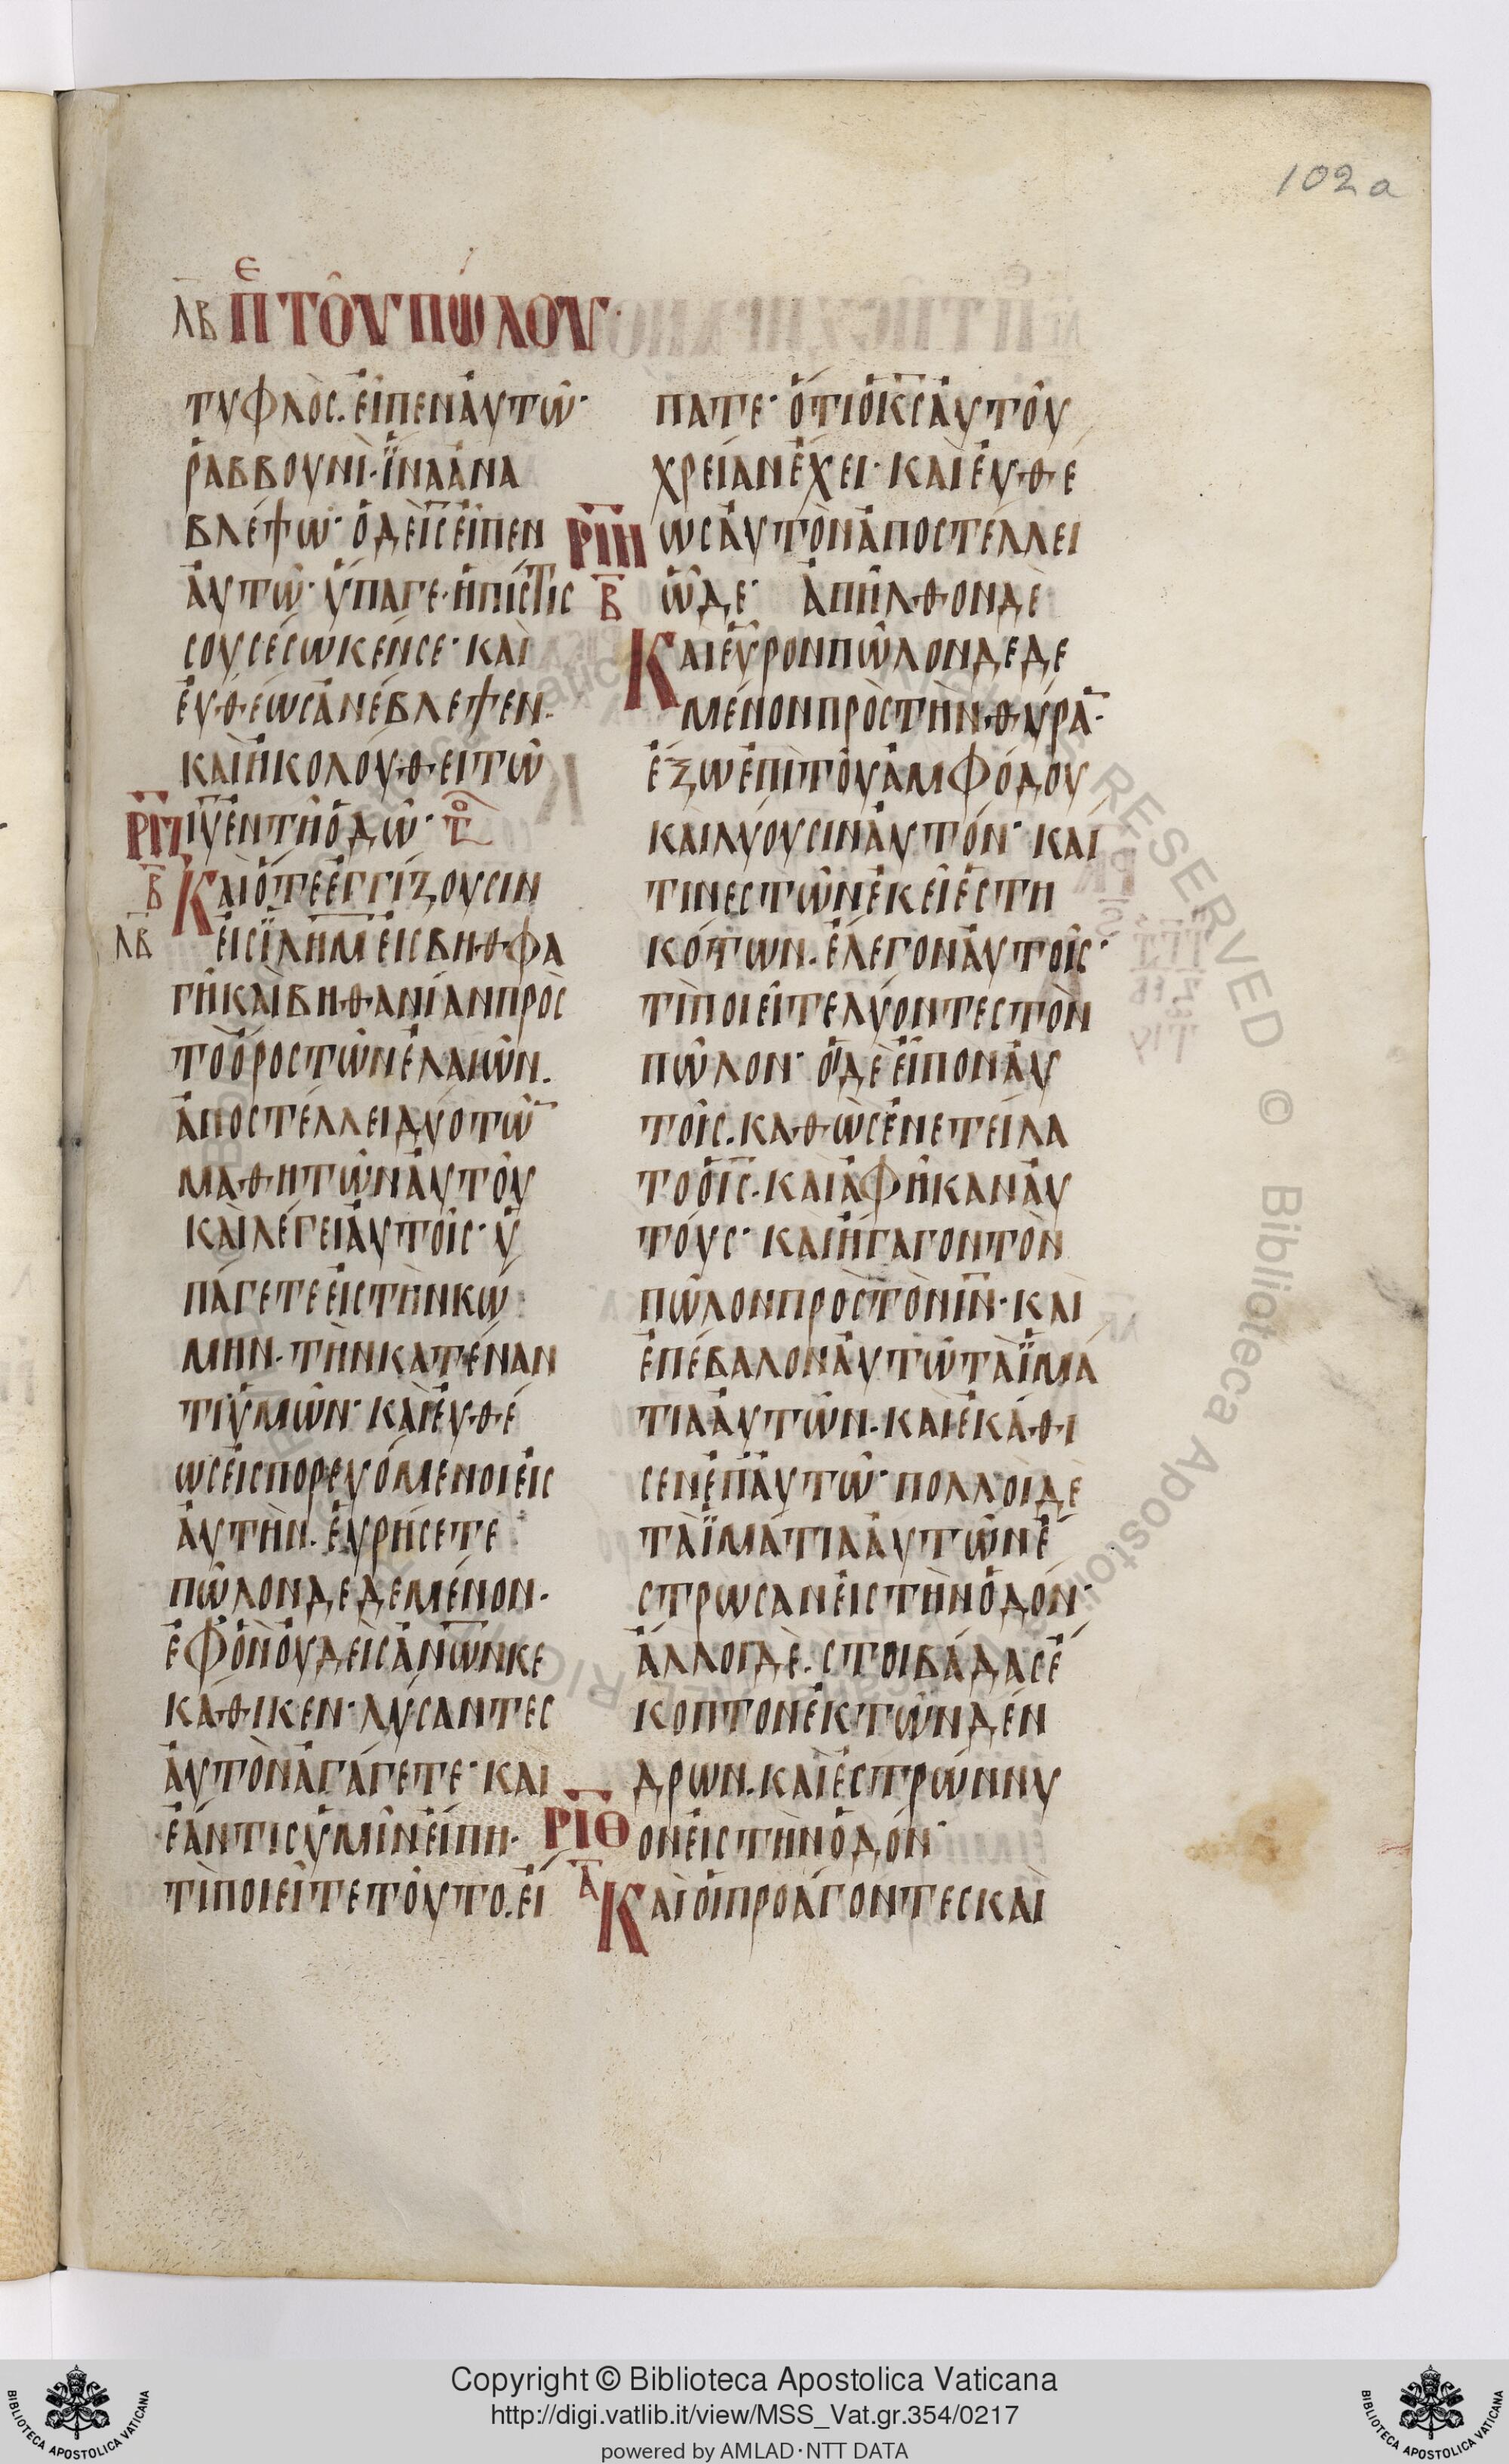 102a
λβ Π̅ε ΤΟΥ ΠΩΛΟΥ·
ΤΥΦΛΟΣ. ΕΙΠΕΝ ΑΥΤΩ·
ΡΑΒΒΟΥΝΙ· ΙΝΑ ΑΝΑ
ΒΛΕΨΩ· Ο ΔΕ Ι̅Σ̅ ΕΙΠΕΝ
ΑΥΤΩ· ΥΠΑΓΕ· Η ΠΙΣΤΙΣ
ΣΟΥ ΣΕΣΩΚΕΝ ΣΕ· ΚΑΙ
ΕΥΘΕΩΣ ΑΝΕΒΛΕΨΕΝ·
ΚΑΙ ΗΚΟΛΟΥΘΕΙ ΤΩ
ΡΙΖ Ι̅Υ̅ ΕΝ ΤΗ ΟΔΩ·
Β ΚΑΙ ΟΤΕ ΕΓΓΙΖΟΥΣΙΝ
ΛΒ ΕΙΣ Ι̅Λ̅Η̅Μ̅ ΕΙΣ ΒΗΘΦΑ
ΓΗ ΚΑΙ ΒΗΘΑΝΙΑΝ ΠΡΟΣ
ΤΟ ΟΡΟΣ ΤΩΝ ΕΛΑΙΩΝ.
ΑΠΟΣΤΕΛΛΕΙ ΔΥΟ ΤΩ̅
ΜΑΘΗΤΩΝ ΑΥΤΟΥ
ΚΑΙ ΛΕΓΕΙ ΑΥΤΟΙΣ· Υ
ΠΑΓΕΤΕ ΕΙΣ ΤΗΝ ΚΩ
ΜΗΝ· ΤΗΝ ΚΑΤΕΝΑΝ
ΤΙ ΥΜΩΝ· ΚΑΙ ΕΥΘΕ
ΩΣ ΕΙΣΠΟΡΕΥΟΜΕΝΟΙ ΕΙΣ
ΑΥΤΗΝ. ΕΥΡΗΣΕΤΕ
ΠΩΛΟΝ ΔΕΔΕΜΕΝΟΝ·
ΕΦ ΟΝ ΟΥΔΕΙΣ Α̅Ν̅Ω̅Ν̅ ΚΕ
ΚΑΘΙΚΕΝ· ΛΥΣΑΝΤΕΣ
ΑΥΤΟΝ ΑΓΑΓΕΤΕ· ΚΑΙ
ΕΑΝ ΤΙΣ ΥΜΙΝ ΕΙΠΗ·
ΤΙ ΠΟΙΕΙΤΕ ΤΟΥΤΟ. ΕΙ
ΠΑΤΕ· ΟΤΙ Ο Κ̅Σ̅ ΑΥΤΟΥ
ΧΡΕΙΑΝ ΕΧΕΙ· ΚΑΙ ΕΥΘΕ
ΡΙΗ ΩΣ ΑΥΤΟΝ ΑΠΟΣΤΕΛΛΕΙ
Β ΩΔΕ· ΑΠΗΛΘΟΝ ΔΕ
ΚΑΙ ΕΥΡΟΝ ΠΩΛΟΝ ΔΕΔΕ
ΜΕΝΟΝ ΠΡΟΣ ΤΗΝ ΘΥΡΑ̅·
ΕΞΩ ΕΠΙ ΤΟΥ ΑΜΦΟΔΟΥ
ΚΑΙ ΛΥΟΥΣΙΝ ΑΥΤΟΝ· ΚΑΙ
ΤΙΝΕΣ ΤΩΝ ΕΚΕΙ ΕΣΤΗ
ΚΟΤΩΝ. ΕΛΕΓΟΝ ΑΥΤΟΙΣ·
ΤΙ ΠΟΙΕΙΤΕ ΛΥΟΝΤΕΣ ΤΟΝ
ΠΩΛΟΝ· ΟΙ ΔΕ ΕΙΠΟΝ ΑΥ
ΤΟΙΣ. ΚΑΘΩΣ ΕΝΕΤΕΙΛΑ
ΤΟ Ο Ι̅Σ̅· ΚΑΙ ΑΦΗΚΑΝ ΑΥ
ΤΟΥΣ· ΚΑΙ ΗΓΑΓΟΝ ΤΟΝ
ΠΩΛΟΝ ΠΡΟΣ ΤΟΝ Ι̅Ν̅· ΚΑΙ
ΕΠΕΒΑΛΟΝ ΑΥΤΩ ΤΑ ΙΜΑ
ΤΙΑ ΑΥΤΩΝ· ΚΑΙ ΕΚΑΘΙ
ΣΕΝ ΕΠ ΑΥΤΩ· ΠΟΛΛΟΙ ΔΕ
ΤΑ ΙΜΑΤΙΑ ΑΥΤΩΝ Ε
ΣΤΡΩΣΑΝ ΕΙΣ ΤΗΝ ΟΔΟΝ·
ΑΛΛΟΙ ΔΕ. ΣΤΟΙΒΑΔΑΣ Ε
ΚΟΠΤΟΝ ΕΚ ΤΩΝ ΔΕΝ
ΔΡΩΝ. ΚΑΙ ΕΣΤΡΩΝΝΥ
ΡΙΘ ΟΝ ΕΙΣ ΤΗΝ ΟΔΟΝ·
Α ΚΑΙ ΟΙ ΠΡΟΑΓΟΝΤΕΣ ΚΑΙ
Copyright © Biblioteca Apostolica Vaticana
http://digi.vatlib.it/view/MSS_Vat.gr.354/0217
powered by AMLAD·NTT DATA
BIBLIOTECA APOSTOLICA VATICANA
BIBLIOTECA APOSTOLICA VATICANA